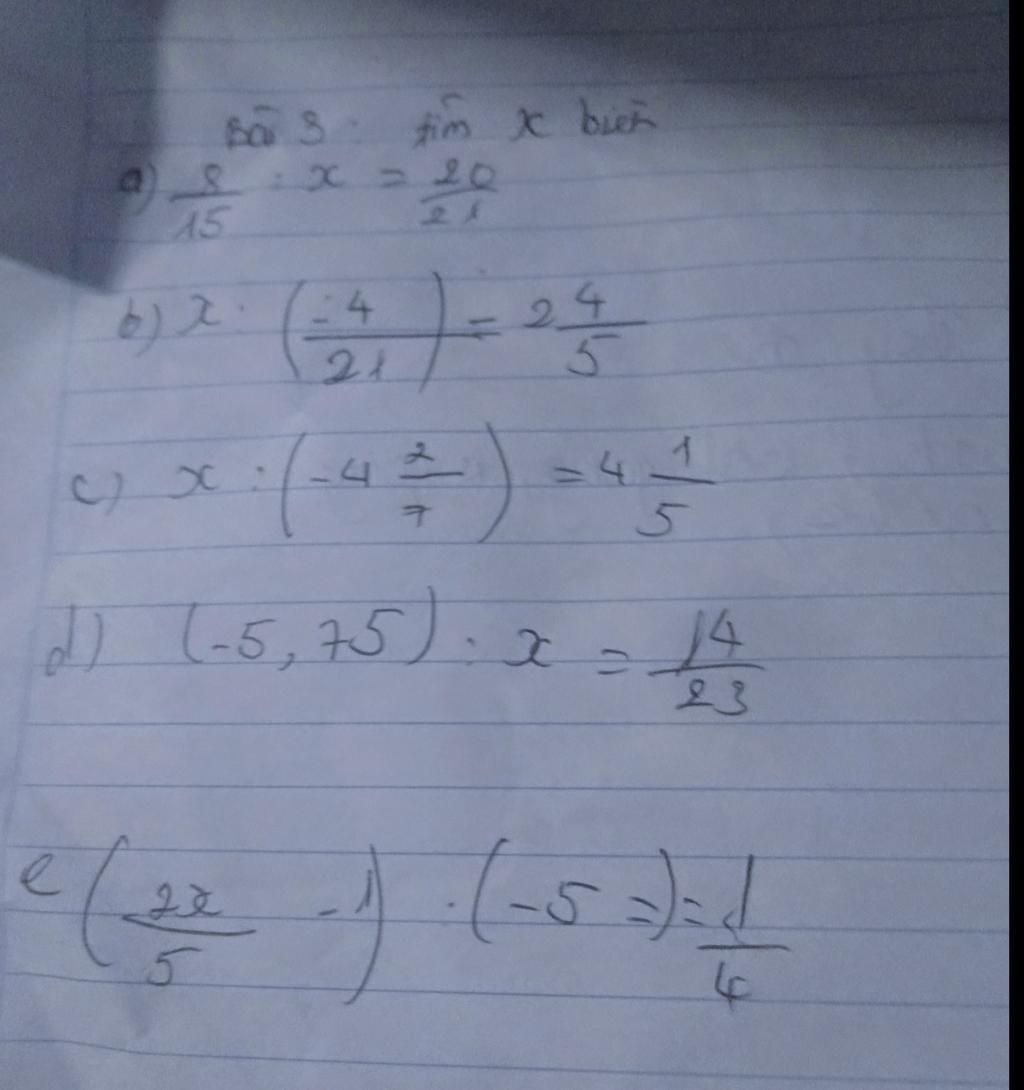 Bài 3: tìm x biết
a) 8/15 : x = 20/21
b) x : (-4/21) = 2 4/5
c) x : (-4 2/7) = 4 1/5
d) (-5,75) : x = 14/23
e (2x/5 - 1) . (-5 =) = 1/4